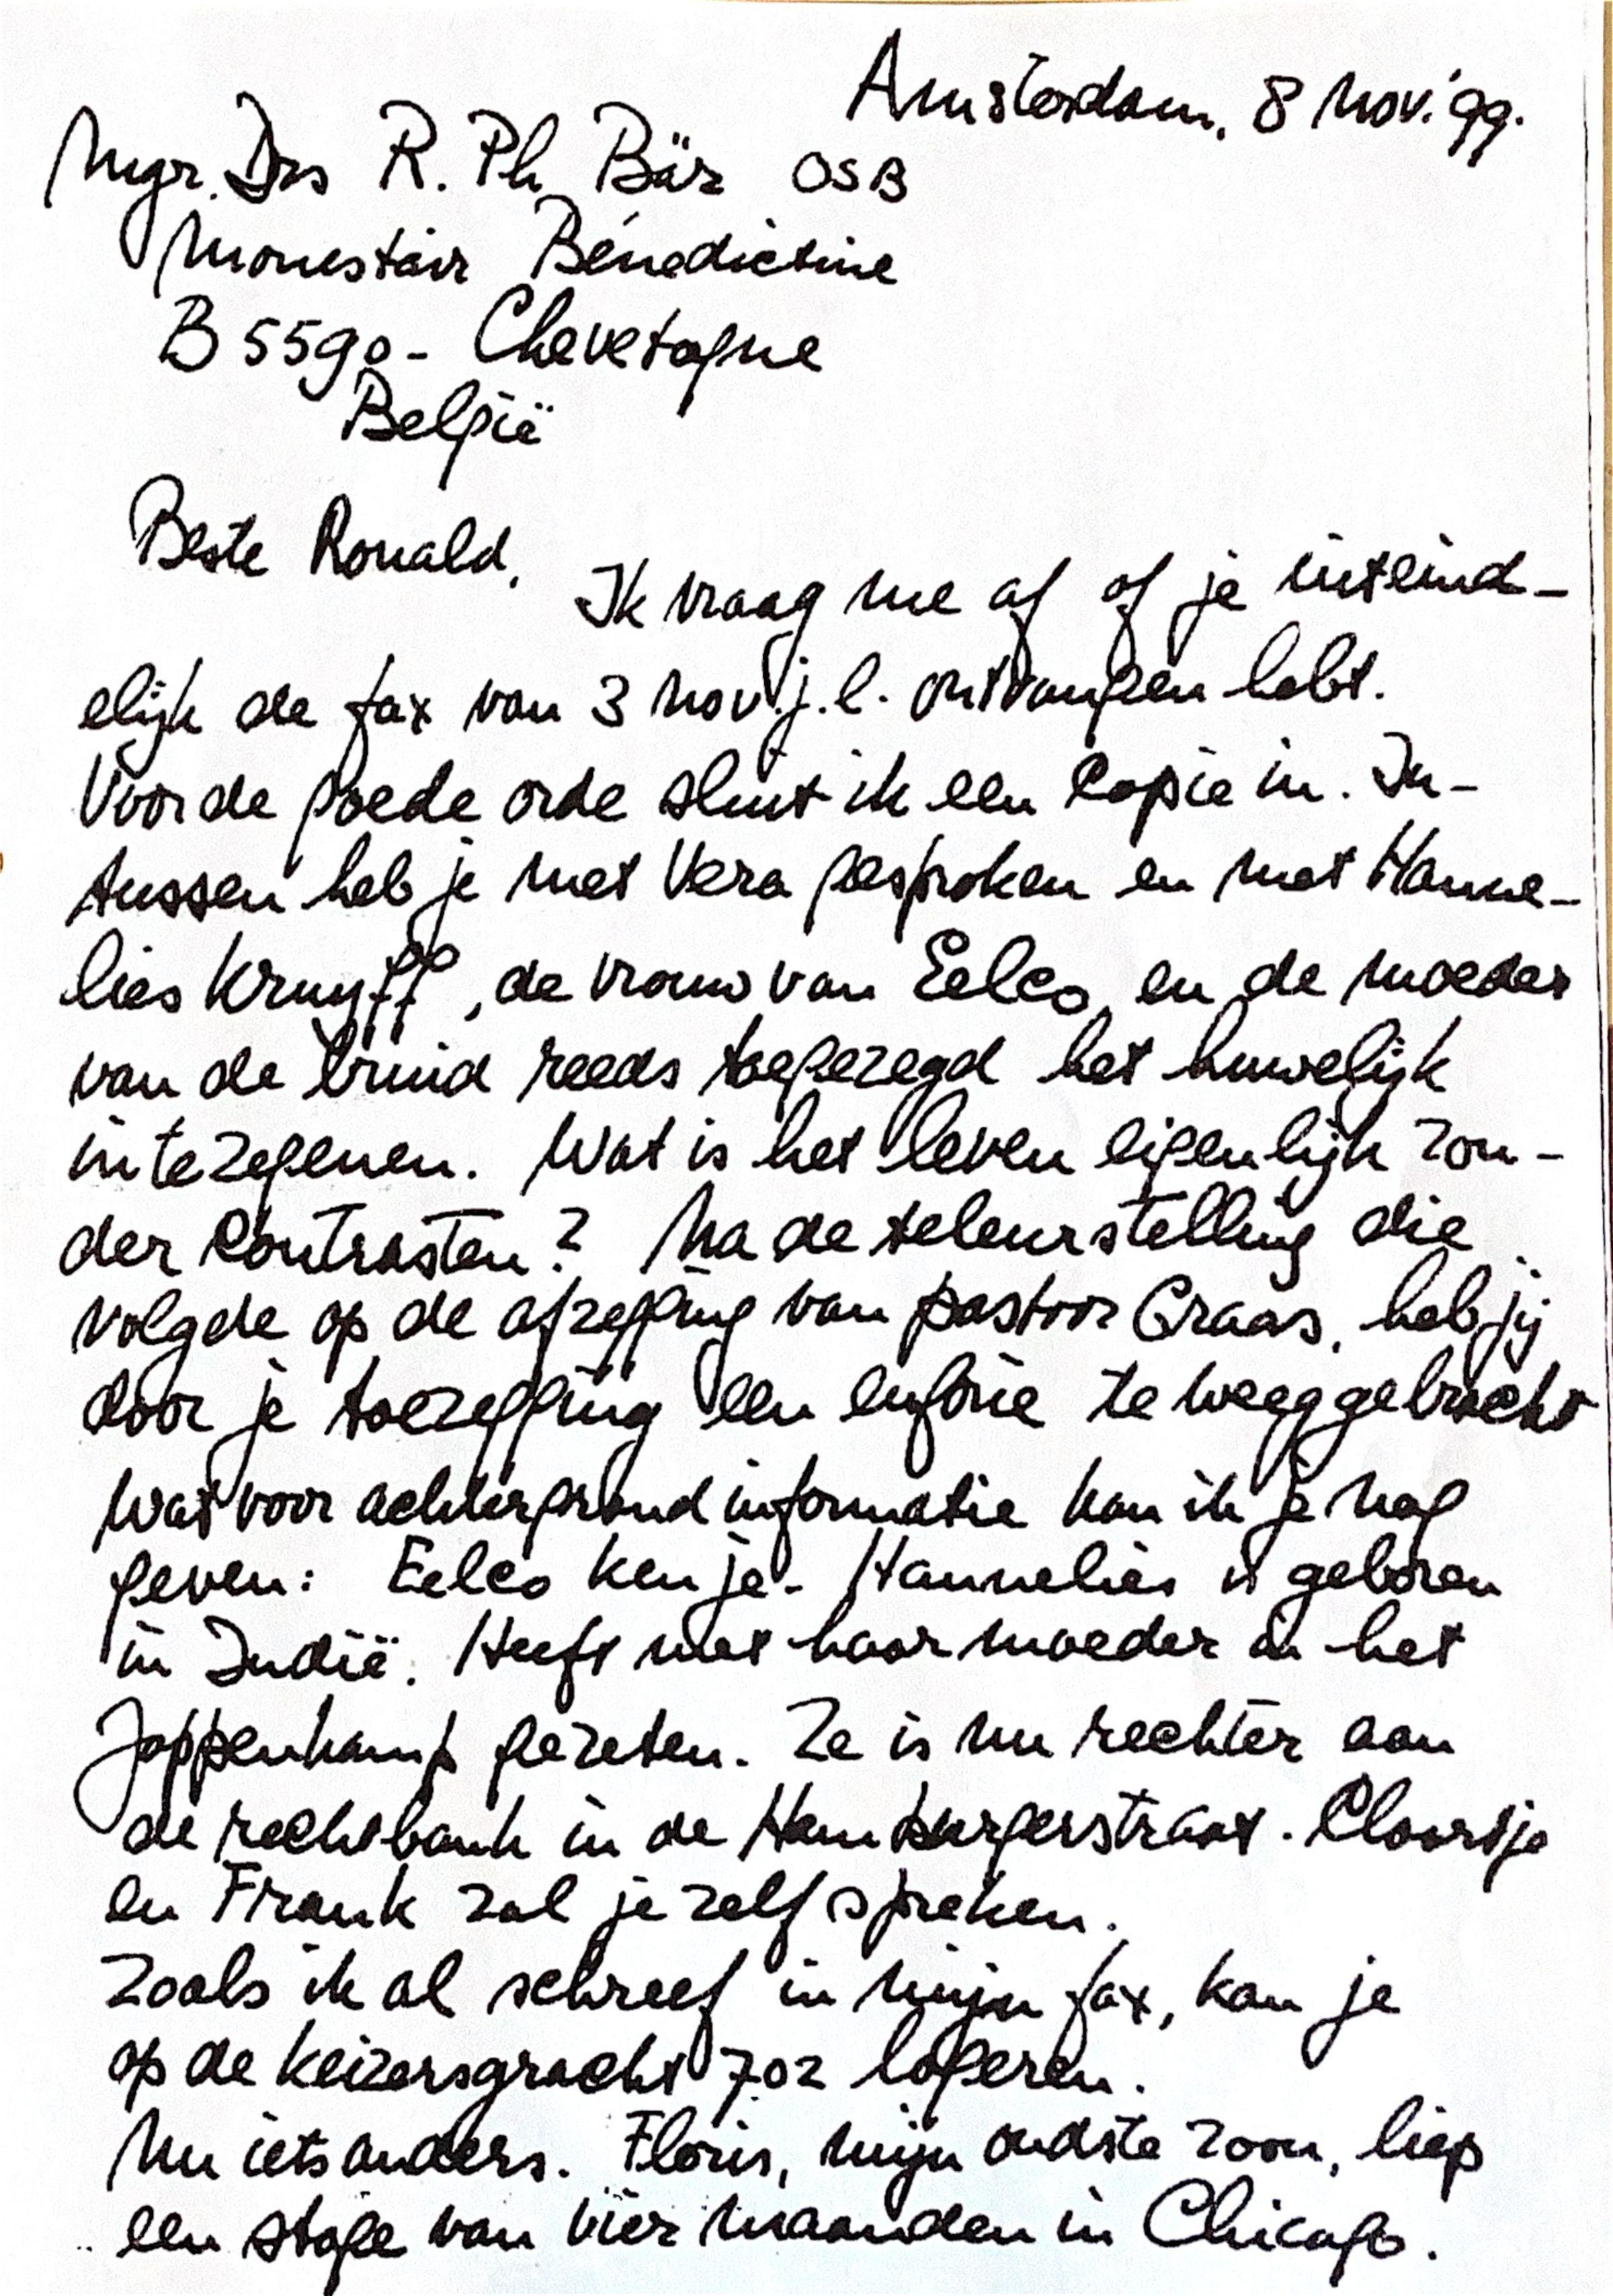 Amsterdam, 8 nov. '99.
Mgr. Drs R. Ph. Bär OSB
Monestair Bénedictine
B 5590 - Chevetogne
België
Beste Ronald,
Ik vraag me af of je uiteind-
elijk de fax van 3 nov. j.l. ontvangen hebt.
Voor de goede orde sluit ik een copie in. In-
tussen heb je met Vera gesproken en met Hanne-
lies Kruyff, de vrouw van Eelco en de moeder
van de bruid reeds toegezegd het huwelijk
in te zegenen. Wat is het leven eigenlijk zon-
der contrasten? Na de teleurstelling die
volgde op de afzegging van pastoor Graas, heb jij
door je toezegging een euforie te weeg gebracht
Wat voor achtergrond informatie kan ik je nog
geven: Eelco ken je. Hannelies is geboren
in Indië. Heeft met haar moeder in het
Jappenkamp gezeten. Ze is nu rechter aan
de rechtbank in de Hamburgerstraat. Claartje
en Frank zal je zelf spreken.
Zoals ik al schreef in mijn fax, kan je
op de Keizersgracht 702 logeren.
Nu iets anders. Floris, mijn oudste zoon, liep
een stage van vier maanden in Chicago.